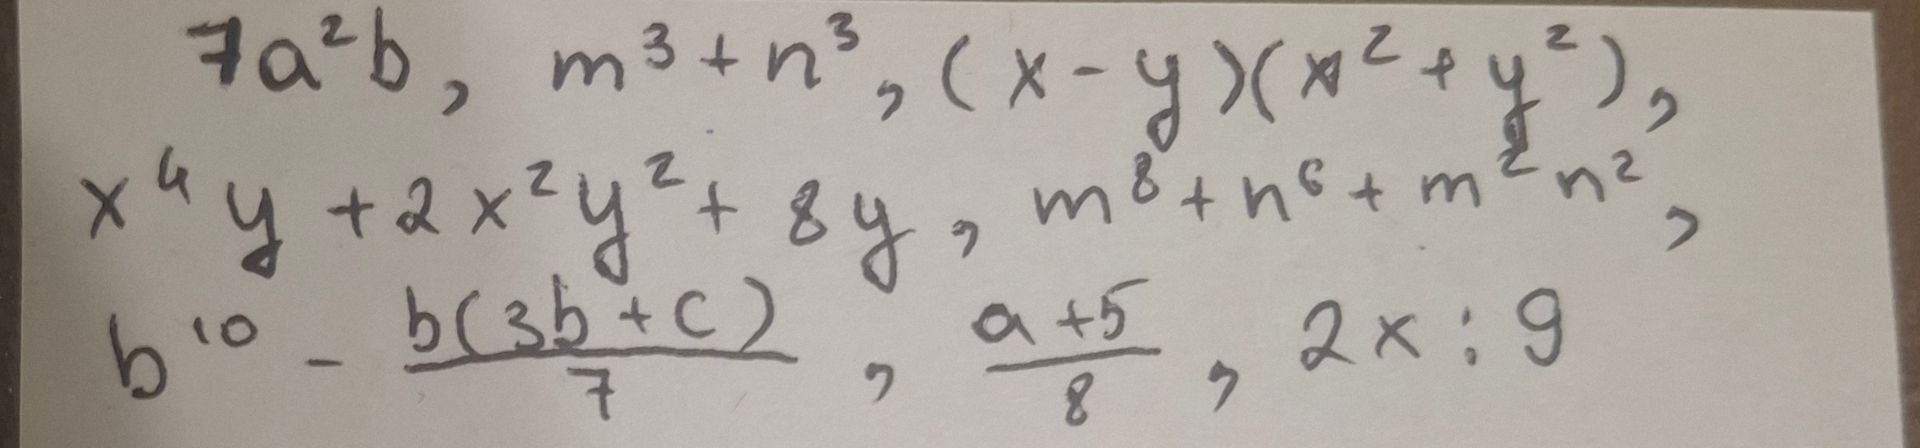 7a²b, m³+n³, (x-y)(x²+y²),
x⁴y+2x²y²+8y, m⁸+n⁶+m²n²,
b¹⁰ - b(3b+c)/7, a+5/8, 2x:9